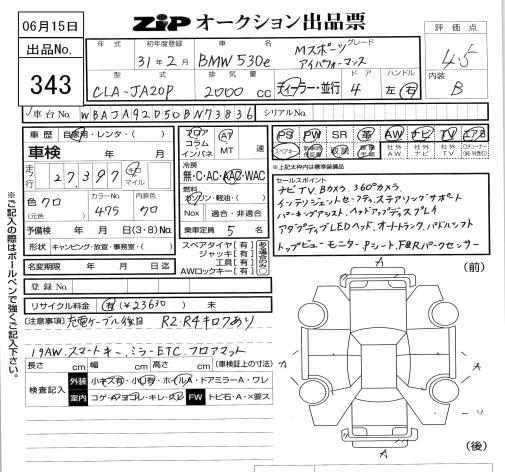 06月15日
ZiP オークション出品票
出品No.
343
年式 初年度登録 車名 グレード
31年2月 BMW530e Mスポーツ
アイパフォーマンス
型式 排気量 ドア ハンドル
CLA-JA20P 2000 cc ディーラー・並行 4 左・右
評価点
4.5
内装
B
車台No. WBAJA92050BN73836 シリアルNo.
車歴 自家用・レンタ・( )
車検 年 月
走行 27,397 キロ マイル
色 クロ カラーNo. 475 内装色 クロ
(元色)
予備検 年 月 日 (3・8)No.
形状 キャンピング・放宣・事務室・( )
名変期限 年 月 日迄
登録No.
リサイクル料金 有(¥23630) 未
フロア コラム インパネ A7 MT 速
冷房
無・C・AC・AAC・WAC
燃料
ガソリン・軽油・( )
Nox 適合・非適合
乗車定員 5 名
スペアタイヤ[有]
ジャッキ[有]
工具[有]
AWロックキー[有]
PS PW SR 革 AW ナビ TV エアB
スペアキー 取説 社外AW 社外ナビ 社外TV
※上記太枠内は標準装備品
セールスポイント
ナビTV.Bカメラ.360°カメラ.
インテリジェントセーフティ.ステアリングサポート
パーキングアシスト.ヘッドアップディスプレイ
アダプティブLEDヘッド.オートトランク.パドルシフト
トップビューモニター.Pシート.F&Rパークセンサー
[注意事項] 充電ケーブル後日 R2.R4キロフあり
19AW.スマートキー.ミラーETC.フロアマット
長さ cm 幅 cm 高さ cm (車検証上の寸法)
検査記入 外装 小キズ有・小凹有・ホイルA・ドアミラーA・ワレ
室内 コゲA・ヨゴレ・キレ・スレ FW トビ石・A・×要ス
※ご記入の際はボールペンで強くご記入下さい。
(前)
A
A
A
A
(後)